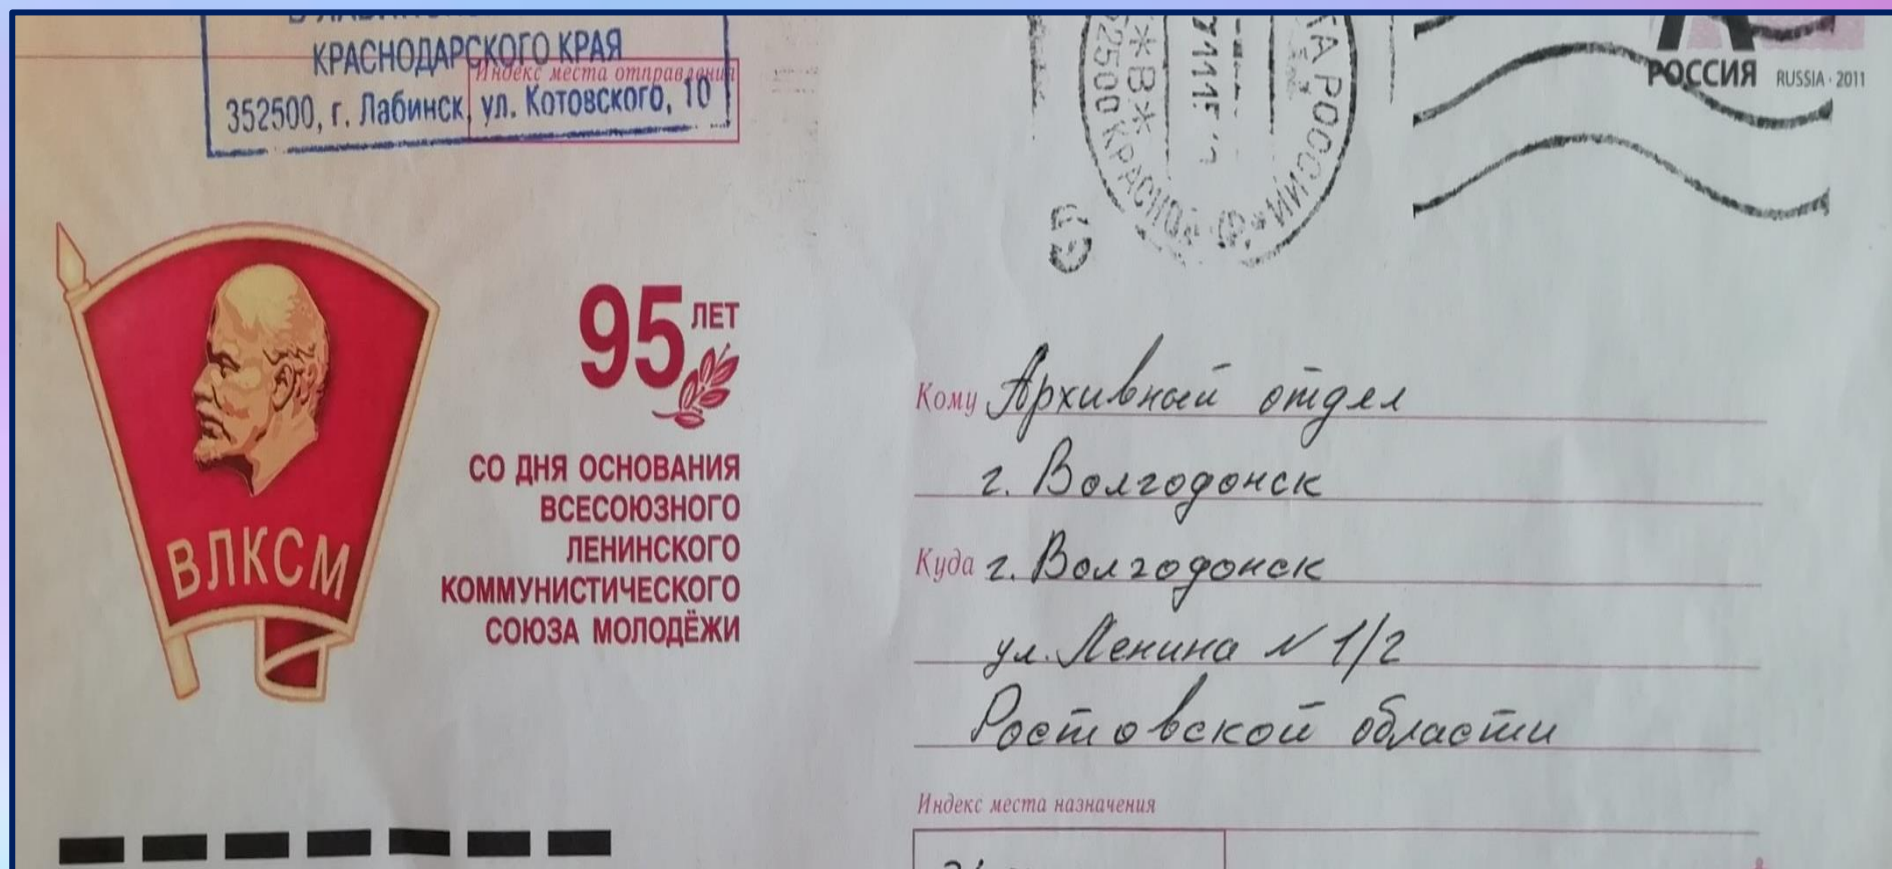 КРАСНОДАРСКОГО КРАЯ
Индекс места отправления
352500, г. Лабинск, ул. Котовского, 10
РОССИЯ RUSSIA · 2011
ВЛКСМ
95 ЛЕТ
СО ДНЯ ОСНОВАНИЯ
ВСЕСОЮЗНОГО
ЛЕНИНСКОГО
КОММУНИСТИЧЕСКОГО
СОЮЗА МОЛОДЁЖИ
Кому Архивный отдел
г. Волгодонск
Куда г. Волгодонск
ул. Ленина № 1/2
Ростовской области
Индекс места назначения